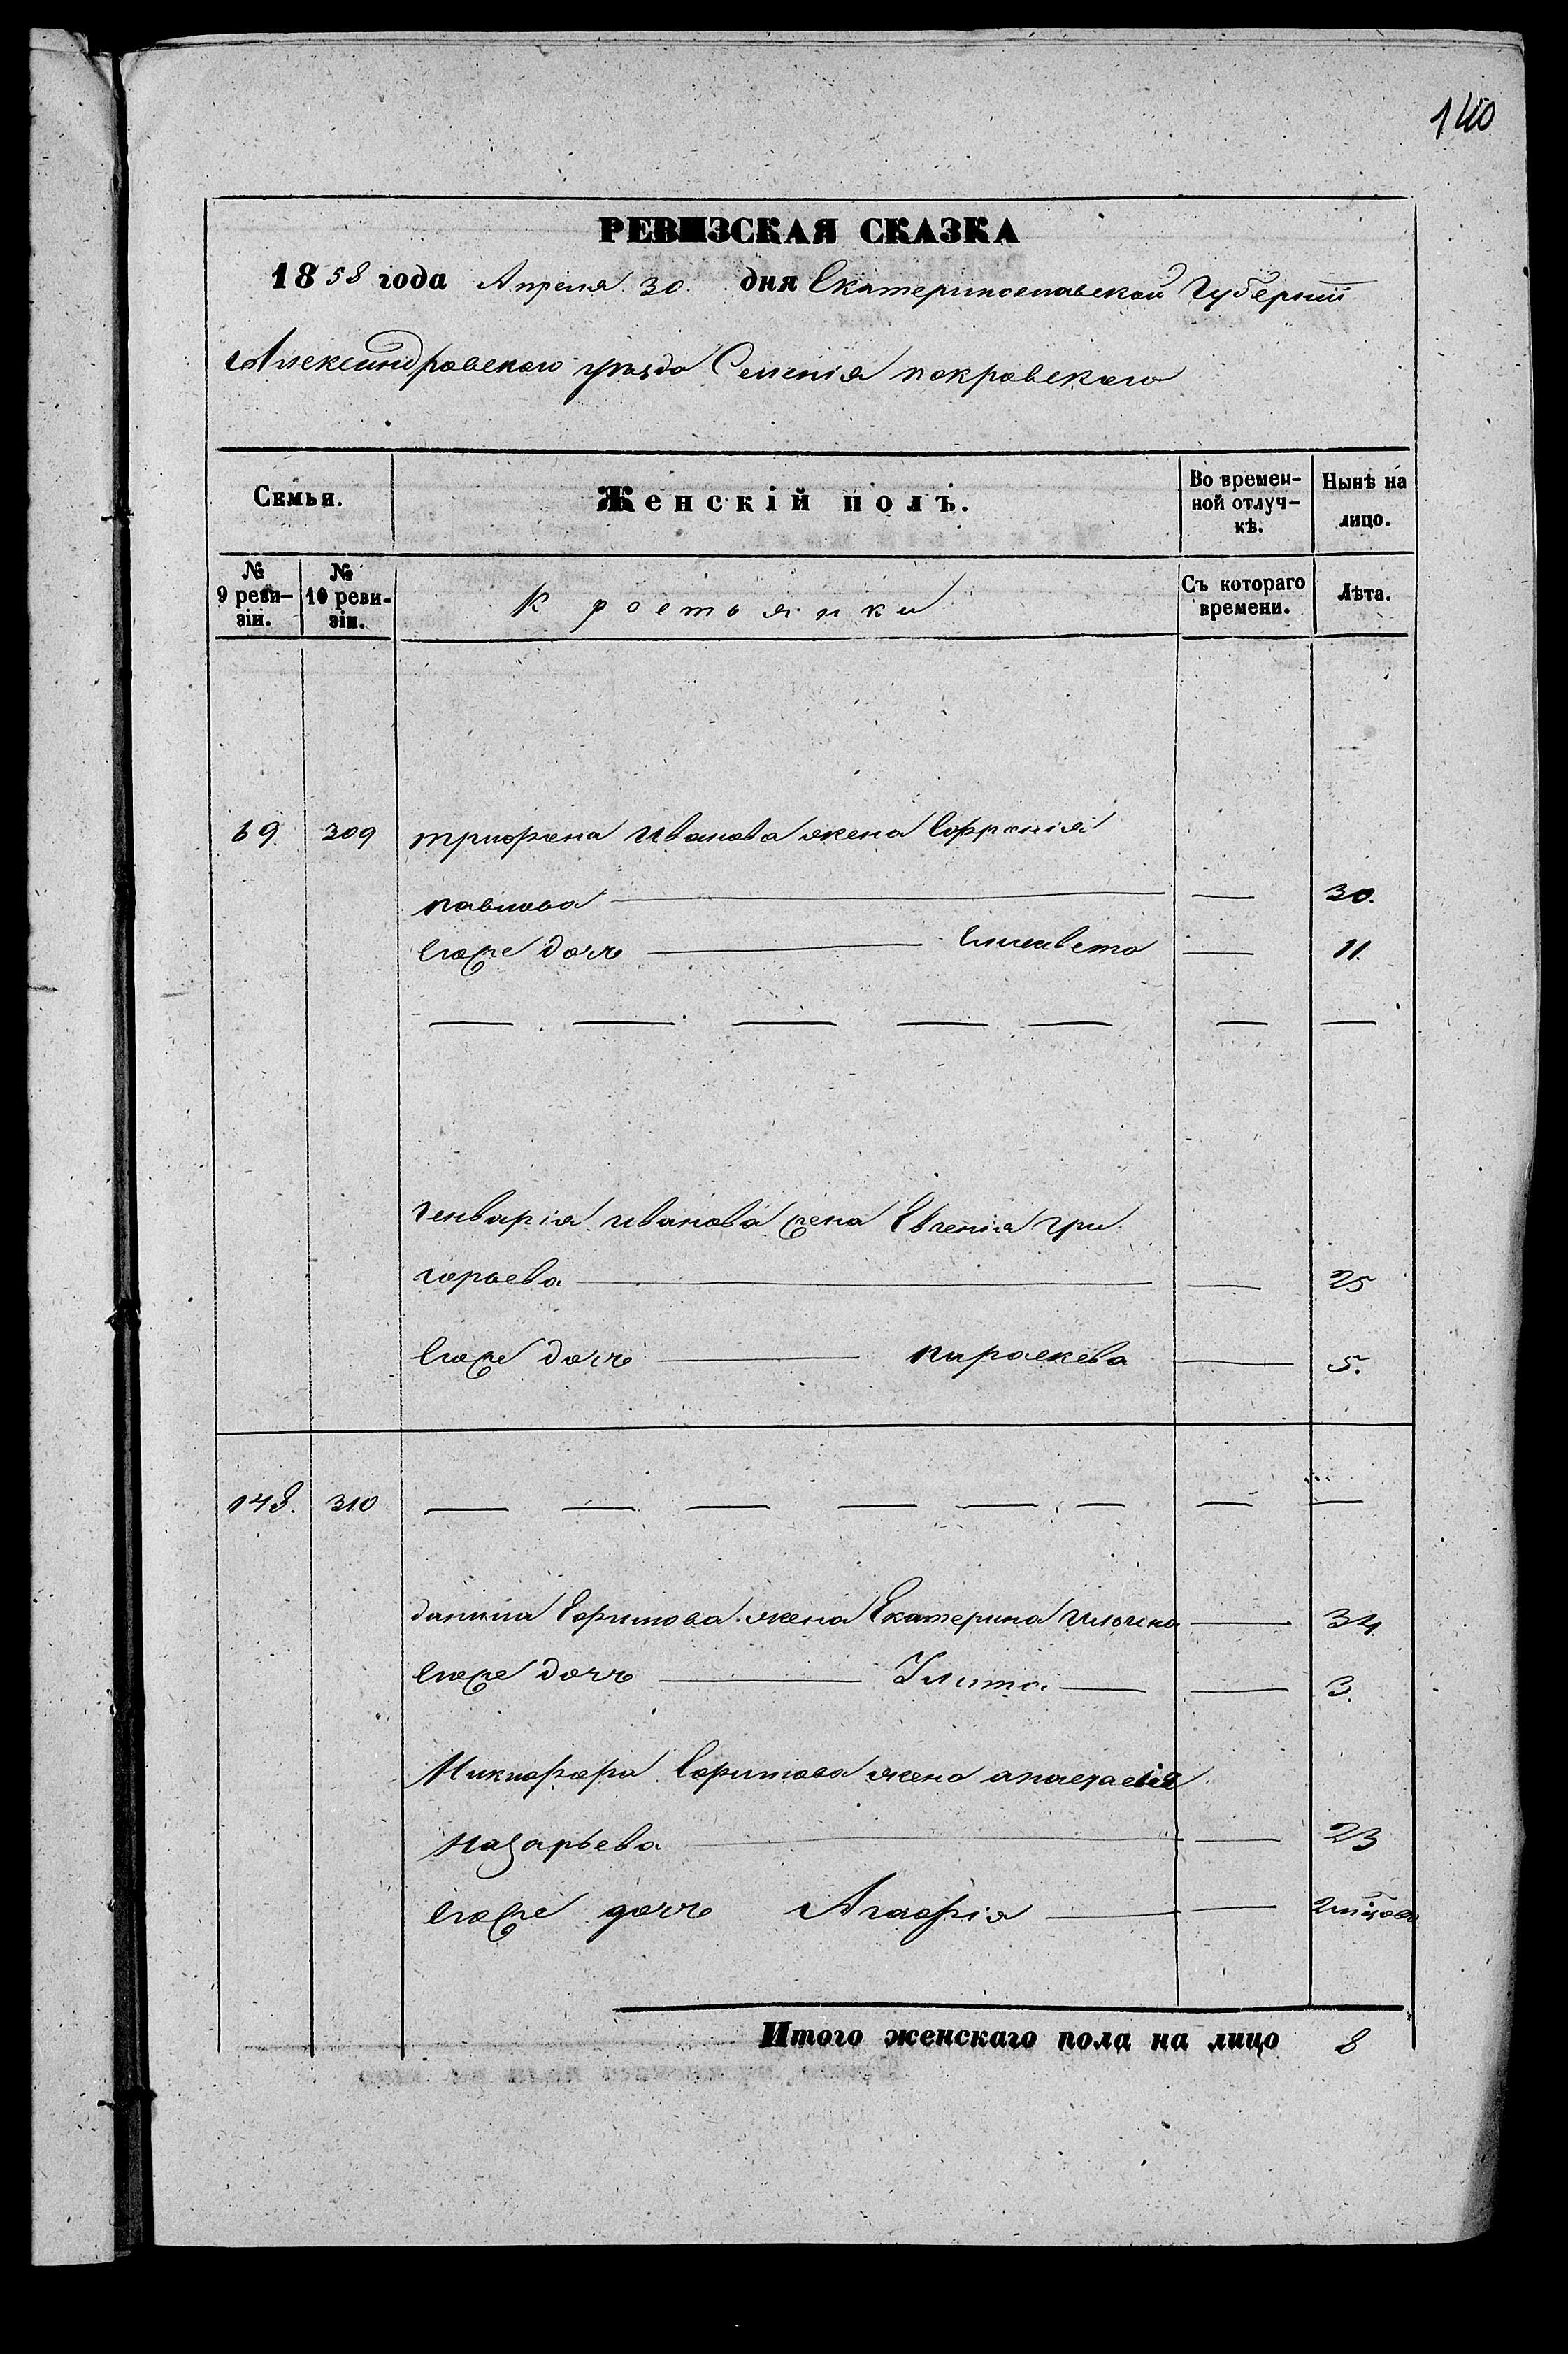 140
РЕВИЗСКАЯ СКАЗКА
1858 года Апреля 30. дня Екатеринославской Губернiи
Александровского уезда Селенiя покровского
Семьи. Женскiй полъ. Во временной отлучкѣ. Нынѣ на лицо.
№ 9 ревизiи. № 10 ревизiи. Крестьянки Съ котораго времени. Лѣта.
69. 309 трифена Иванова жена Софронiя
павлова — 30.
Егоже дочь — Елисавета — 11.
— — — — — — —
Генварiя иванова жена Евгенiя гри
горьева — 25
Егоже дочь — параскева — 5.
148. 310 — — — — — — — —
данила Ефимова жена Екатерина Ильина — 34
Егоже дочь — Улита — 3.
Никифора Ефимова жена анастасiя
назарьева — 23
Егоже дочь Агафiя — 2 мѣсяцовъ
Итого женскаго пола на лицо 8